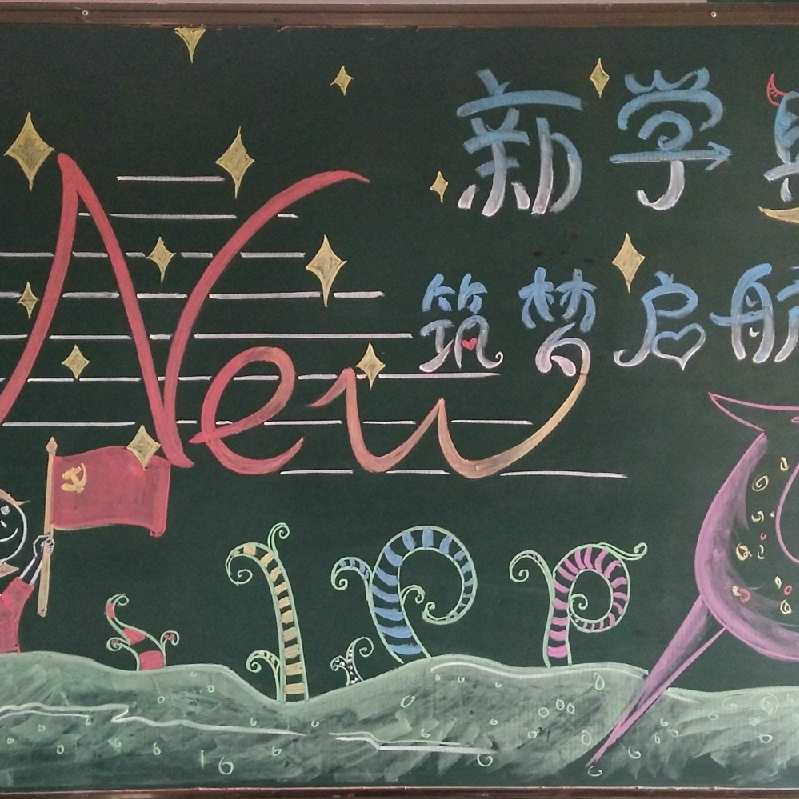 新学
筑梦启航
New